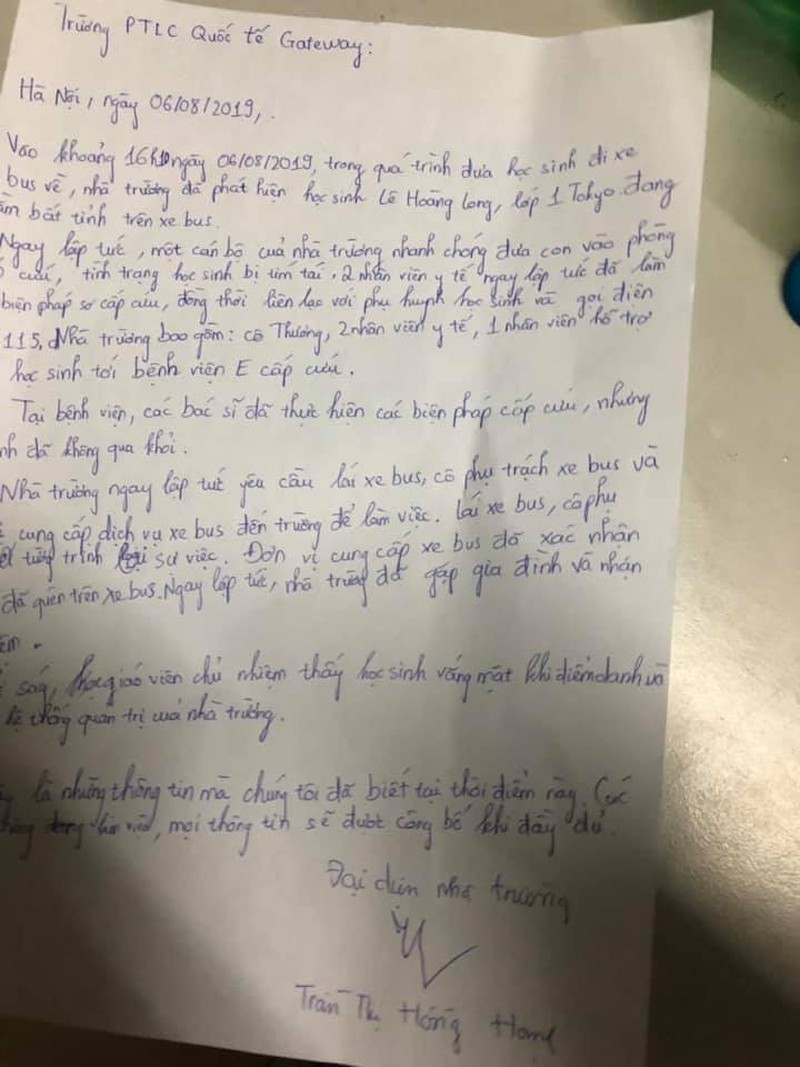 Trường PTLC Quốc tế Gateway:
Hà Nội, ngày 06/08/2019,.
Vào khoảng 16h10 ngày 06/08/2019, trong quá trình đưa học sinh đi xe
bus về, nhà trường đã phát hiện học sinh Lê Hoàng Long, lớp 1 Tokyo đang
bất tỉnh trên xe bus.
Ngay lập tức, một cán bộ của nhà trường nhanh chóng đưa con vào phòng
cứu, tình trạng học sinh bị tím tái, 2 nhân viên y tế ngay lập tức đã làm
biện pháp sơ cấp cứu, đồng thời liên lạc với phụ huynh học sinh và gọi điện
115, Nhà trường bao gồm: cô Thương, 2 nhân viên y tế, 1 nhân viên hỗ trợ
học sinh tới bệnh viện E cấp cứu.
Tại bệnh viện, các bác sĩ đã thực hiện các biện pháp cấp cứu, nhưng
đã không qua khỏi.
Nhà trường ngay lập tức yêu cầu lái xe bus, cô phụ trách xe bus và
cung cấp dịch vụ xe bus đến trường để làm việc. Lái xe bus, cô phụ
tường trình lại sự việc. Đơn vị cung cấp xe bus đã xác nhận
đã quên trên xe bus. Ngay lập tức, nhà trường đã gặp gia đình và nhận
giáo viên chủ nhiệm thấy học sinh vắng mặt khi điểm danh và
thống quản trị của nhà trường.
là những thông tin mà chúng tôi đã biết tại thời điểm này. Các
mọi thông tin sẽ được công bố khi đầy đủ.
Đại diện nhà trường
Trần Thị Hồng Hạnh